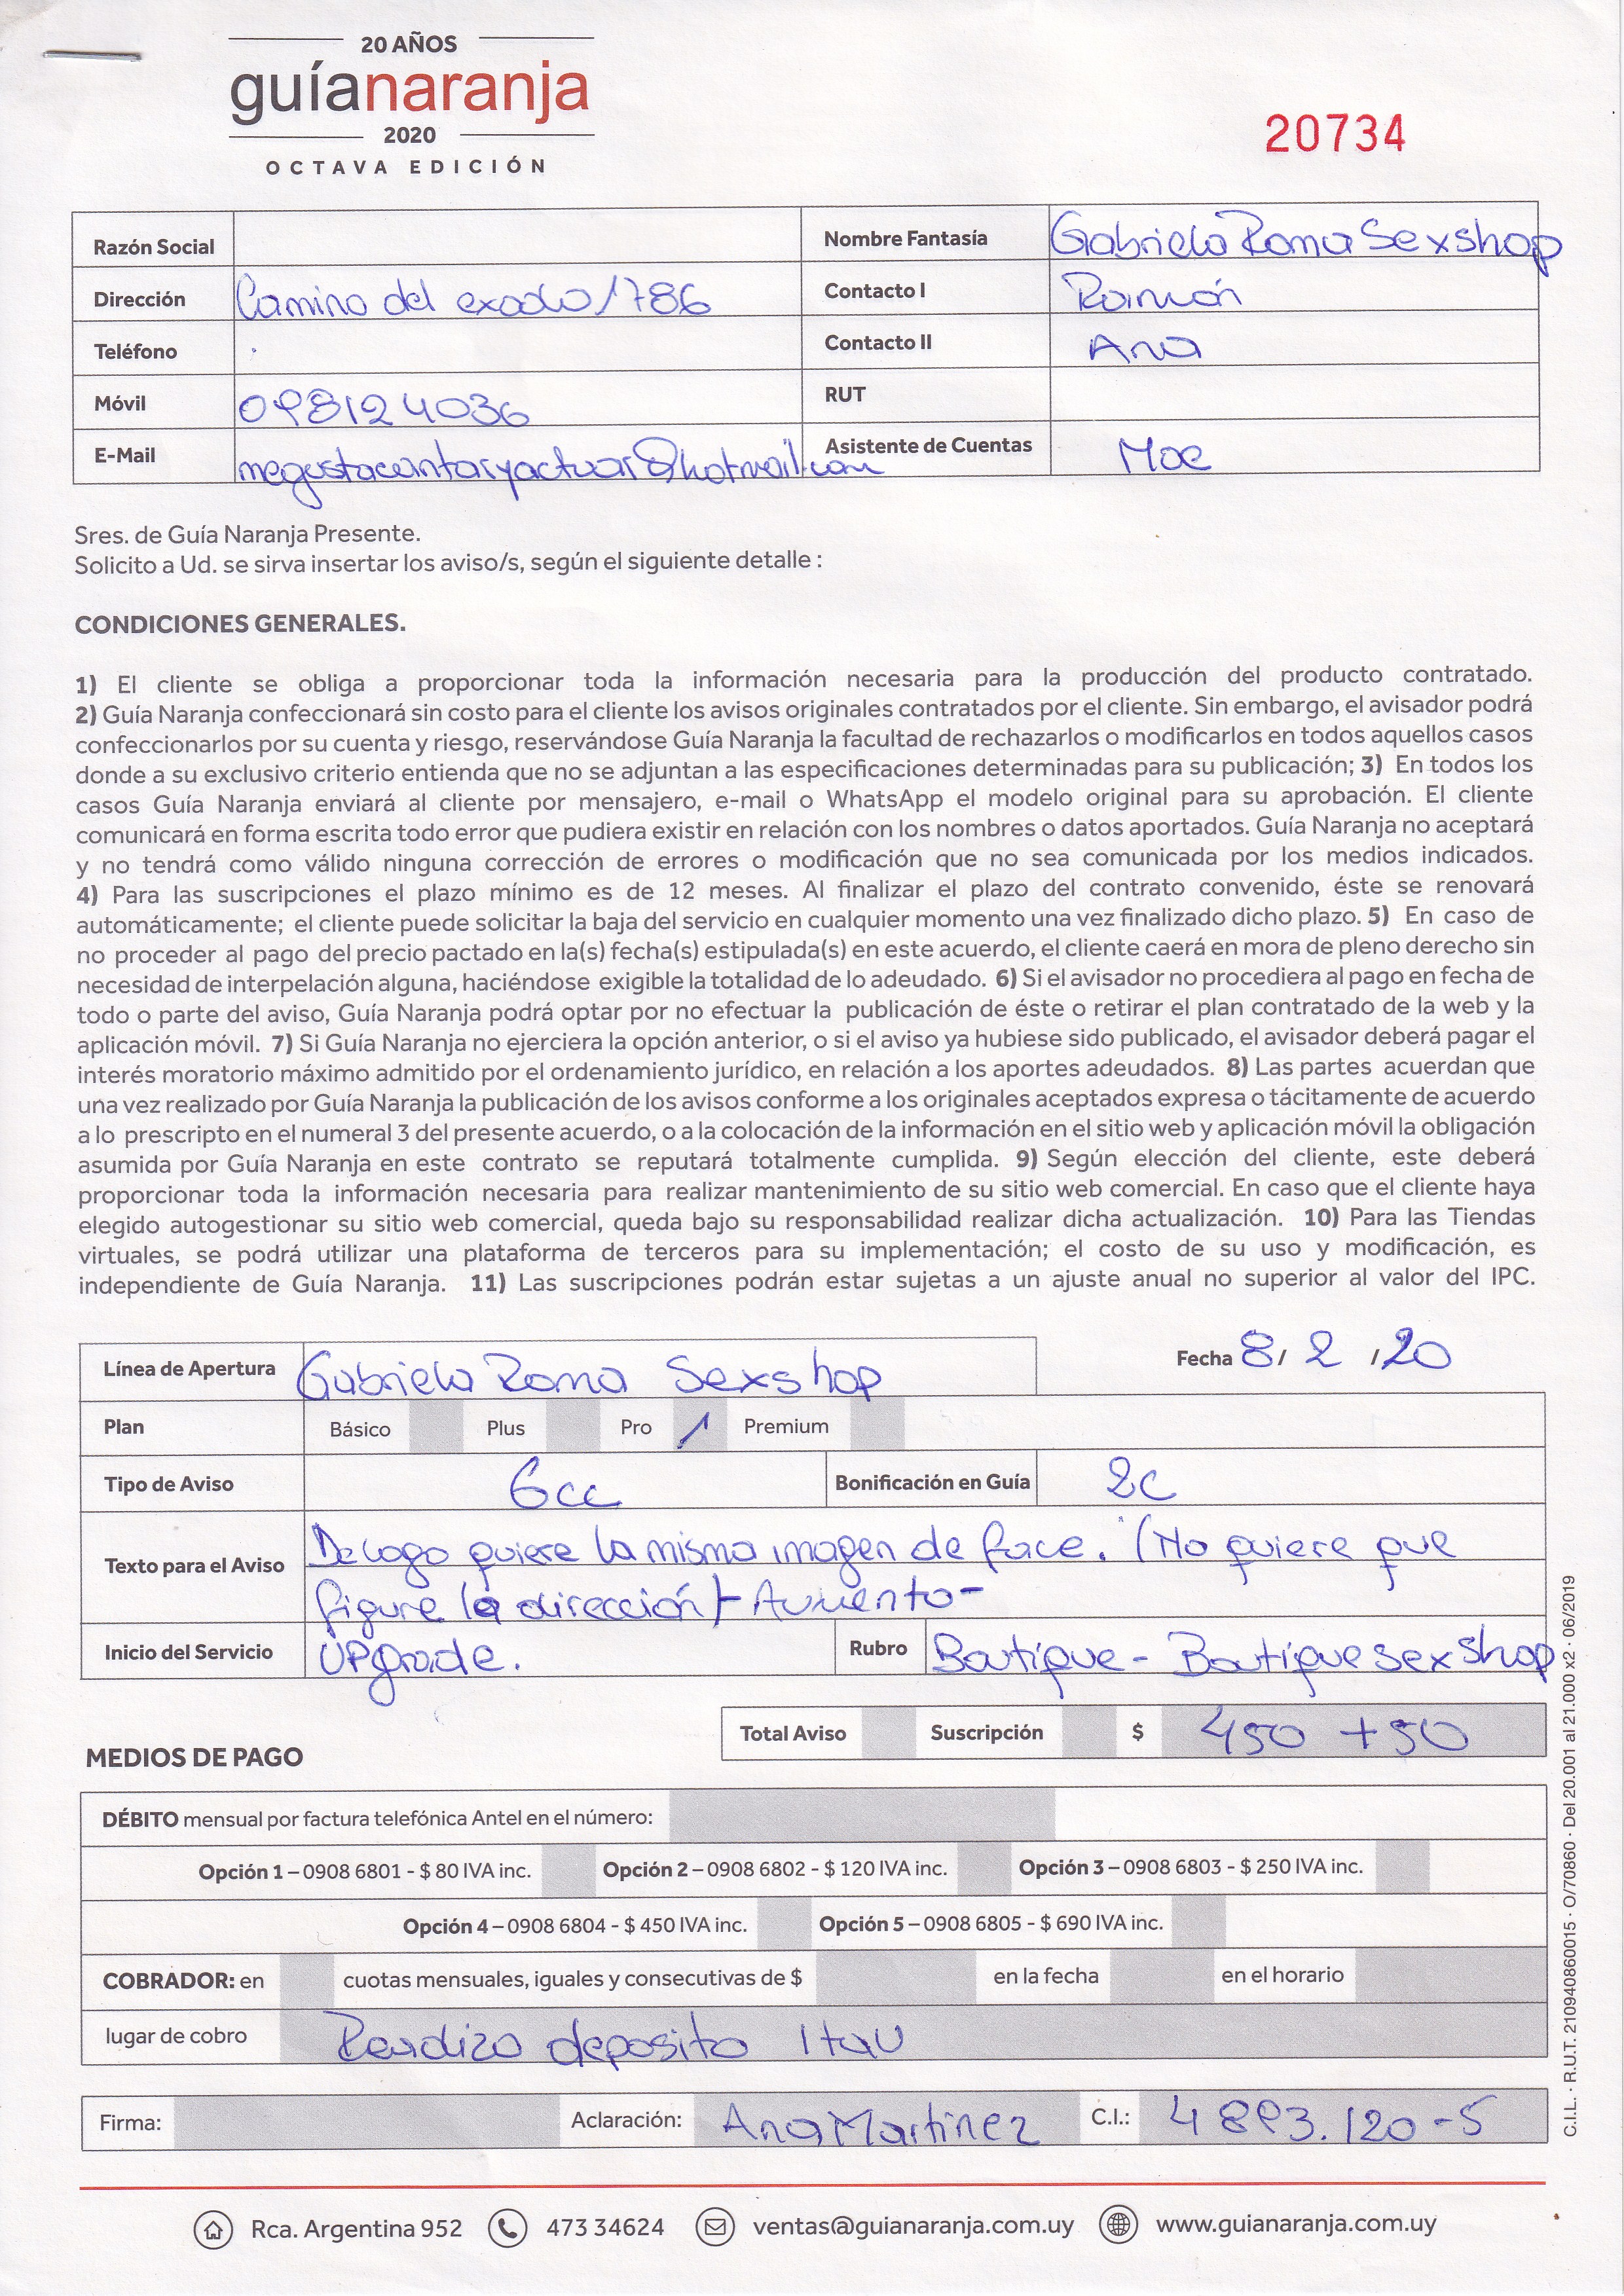 20 AÑOS
guíanaranja
2020
OCTAVA EDICIÓN
20734
Razón Social
Nombre Fantasía Gabriela Roma Sexshop
Dirección Camino del exodo 1786
Contacto I Ramón
Teléfono
Contacto II Ana
Móvil 098124036
RUT
E-Mail megustacantaryactuar@hotmail.com
Asistente de Cuentas Moe
Sres. de Guía Naranja Presente.
Solicito a Ud. se sirva insertar los aviso/s, según el siguiente detalle :
CONDICIONES GENERALES.
1) El cliente se obliga a proporcionar toda la información necesaria para la producción del producto contratado.
2) Guía Naranja confeccionará sin costo para el cliente los avisos originales contratados por el cliente. Sin embargo, el avisador podrá
confeccionarlos por su cuenta y riesgo, reservándose Guía Naranja la facultad de rechazarlos o modificarlos en todos aquellos casos
donde a su exclusivo criterio entienda que no se adjuntan a las especificaciones determinadas para su publicación; 3) En todos los
casos Guía Naranja enviará al cliente por mensajero, e-mail o WhatsApp el modelo original para su aprobación. El cliente
comunicará en forma escrita todo error que pudiera existir en relación con los nombres o datos aportados. Guía Naranja no aceptará
y no tendrá como válido ninguna corrección de errores o modificación que no sea comunicada por los medios indicados.
4) Para las suscripciones el plazo mínimo es de 12 meses. Al finalizar el plazo del contrato convenido, éste se renovará
automáticamente; el cliente puede solicitar la baja del servicio en cualquier momento una vez finalizado dicho plazo. 5) En caso de
no proceder al pago del precio pactado en la(s) fecha(s) estipulada(s) en este acuerdo, el cliente caerá en mora de pleno derecho sin
necesidad de interpelación alguna, haciéndose exigible la totalidad de lo adeudado. 6) Si el avisador no procediera al pago en fecha de
todo o parte del aviso, Guía Naranja podrá optar por no efectuar la publicación de éste o retirar el plan contratado de la web y la
aplicación móvil. 7) Si Guía Naranja no ejerciera la opción anterior, o si el aviso ya hubiese sido publicado, el avisador deberá pagar el
interés moratorio máximo admitido por el ordenamiento jurídico, en relación a los aportes adeudados. 8) Las partes acuerdan que
una vez realizado por Guía Naranja la publicación de los avisos conforme a los originales aceptados expresa o tácitamente de acuerdo
a lo prescripto en el numeral 3 del presente acuerdo, o a la colocación de la información en el sitio web y aplicación móvil la obligación
asumida por Guía Naranja en este contrato se reputará totalmente cumplida. 9) Según elección del cliente, este deberá
proporcionar toda la información necesaria para realizar mantenimiento de su sitio web comercial. En caso que el cliente haya
elegido autogestionar su sitio web comercial, queda bajo su responsabilidad realizar dicha actualización. 10) Para las Tiendas
virtuales, se podrá utilizar una plataforma de terceros para su implementación; el costo de su uso y modificación, es
independiente de Guía Naranja. 11) Las suscripciones podrán estar sujetas a un ajuste anual no superior al valor del IPC.
Línea de Apertura Gabriela Roma Sexshop
Fecha 8/ 2 /20
Plan Básico Plus Pro / Premium
Tipo de Aviso 6cc
Bonificación en Guía 2c
Texto para el Aviso De logo quiere la misma imagen de face. (No quiere que
figure la dirección) - Aumento -
Inicio del Servicio UPgrade.
Rubro Boutique - Boutique sex shop
Total Aviso Suscripción $ 450 + 50
MEDIOS DE PAGO
DÉBITO mensual por factura telefónica Antel en el número:
Opción 1 – 0908 6801 - $ 80 IVA inc. Opción 2 – 0908 6802 - $ 120 IVA inc. Opción 3 – 0908 6803 - $ 250 IVA inc.
Opción 4 – 0908 6804 - $ 450 IVA inc. Opción 5 – 0908 6805 - $ 690 IVA inc.
COBRADOR: en cuotas mensuales, iguales y consecutivas de $ en la fecha en el horario
lugar de cobro deposito Itau
Firma: Aclaración: Ana Martinez C.I.: 4 893.120-5
Rca. Argentina 952 473 34624 ventas@guianaranja.com.uy www.guianaranja.com.uy
C.I.L. · R.U.T.: 210940860015 · O/70860 · Del 20.001 al 21.000 x2 · 06/2019